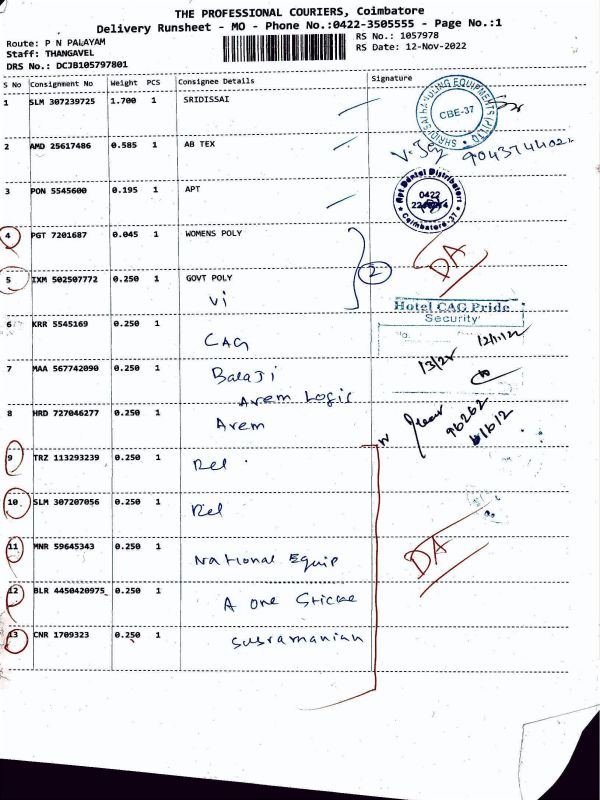 THE PROFESSIONAL COURIERS, Coimbatore
Delivery Runsheet - MO - Phone No.:0422-3505555 - Page No.:1
Route: P N PALAYAM
RS No.: 1057978
Staff: THANGAVEL
RS Date: 12-Nov-2022
DRS No.: DCJB105797801
S No Consignment No Weight PCS Consignee Details Signature
1 SLM 307239725 1.700 1 SRIDISSAI
CBE-37
2 AMD 25617486 0.585 1 AB TEX
3 PON 5545600 0.195 1 APT
Apt Dental Distributors
0422
Coimbatore-37
4 PGT 7201687 0.045 1 WOMENS POLY
DA
5 IXM 502507772 0.250 1 GOVT POLY
2
Vi
Hotel CAG Pride
Security
6 KRR 5545169 0.250 1
CAG
No.
12/11/22
7 MAA 567742090 0.250 1
Balaji
Arem Logic
8 HRD 727046277 0.250 1
Arem
9 TRZ 113293239 0.250 1
Rel
10 SLM 307207056 0.250 1
Rel
11 MNR 59645343 0.250 1
National Equip
DA
12 BLR 4450420975 0.250 1
A one Sticke
13 CNR 1709323 0.250 1
Subramanian